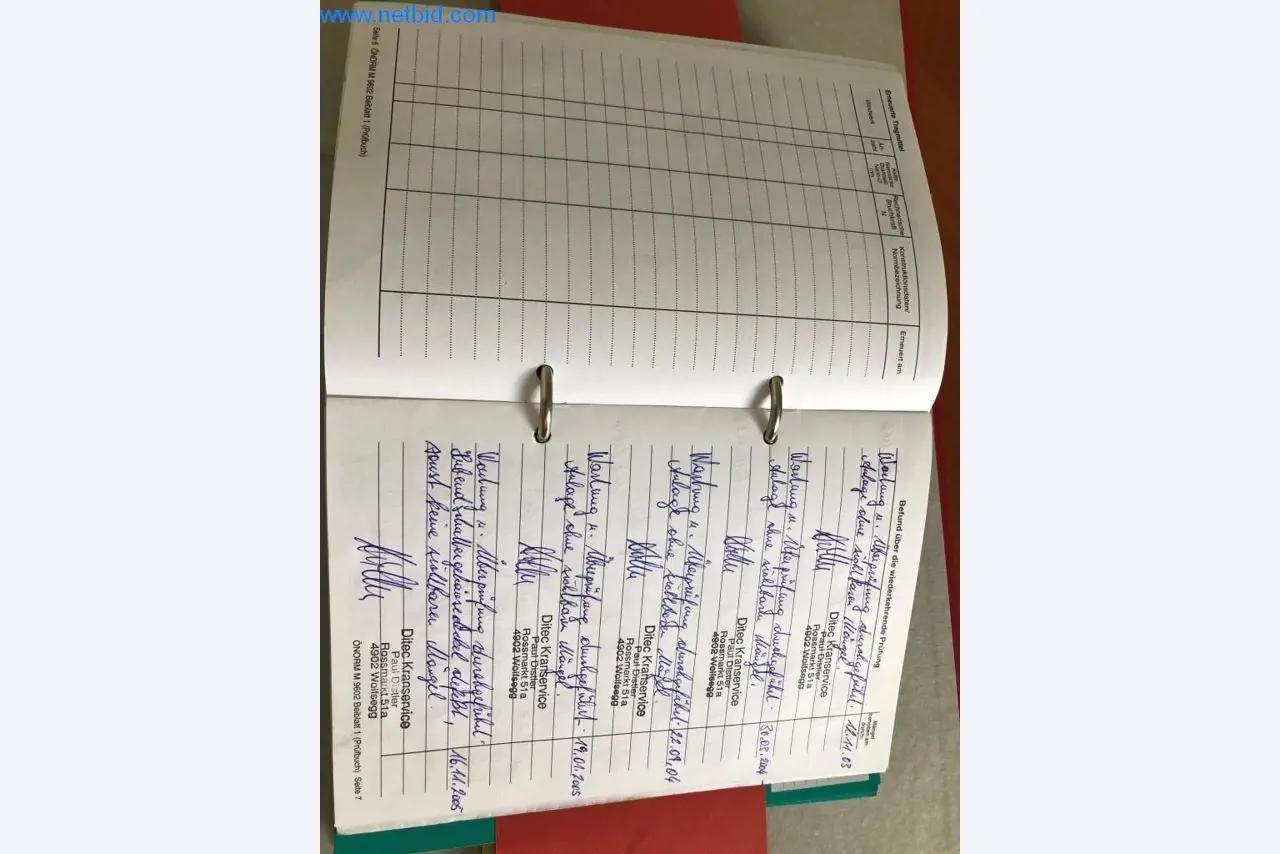 www.netbid.com
Erneuerte Tragmittel
Windwerk
An-
zahl
Nenn-∅
mm
Rechnerische
Bruchkraft
N
Konstruktionsdaten/
Normbezeichnung
Erneuert am
Seite 6 ÖNORM M 9602 Beiblatt 1 (Prüfbuch)
Befund über die wiederkehrende Prüfung
Mängel
durch:
Wartung u. Überprüfung durchgeführt. 12.11.03
Anlage ohne sichtbaren Mängel.
Ditec Kranservice
Paul Distler
Rossmarkt 51a
4902 Wolfsegg
Wartung u. Überprüfung durchgeführt. 30.03.2004
Anlage ohne sichtbaren Mängel.
Ditec Kranservice
Paul Distler
Rossmarkt 51a
4902 Wolfsegg
Wartung u. Überprüfung durchgeführt. 22.09.04
Anlage ohne sichtbaren Mängel.
Ditec Kranservice
Paul Distler
Rossmarkt 51a
4902 Wolfsegg
Wartung u. Überprüfung durchgeführt. 19.01.2005
Anlage ohne sichtbaren Mängel.
Ditec Kranservice
Paul Distler
Rossmarkt 51a
4902 Wolfsegg
Wartung u. Überprüfung durchgeführt.
16.11.2005
sonst keine sichtbaren Mängel.
Ditec Kranservice
Paul Distler
Rossmarkt 51a
4902 Wolfsegg
ÖNORM M 9602 Beiblatt 1 (Prüfbuch) Seite 7